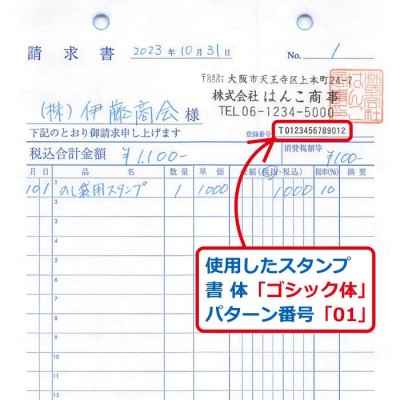 請求書 2023年10月31日 No. 1
大阪市天王寺区上本町24-7
株式会社 はんこ商事
TEL06-1234-5000
(株)伊藤商会 様
下記のとおり御請求申し上げます
登録番号 T0123456789012
税込合計金額 ¥1,100- 消費税額等 ¥100-
月 日 品名 数量 単価 金額(税抜・税込) 税率(%) 摘要
10 1 のし袋用スタンプ 1 1000 1000 10
2
3
4
5
6
7
8
9
10
11
12
使用したスタンプ
書体「ゴシック体」
パターン番号「01」